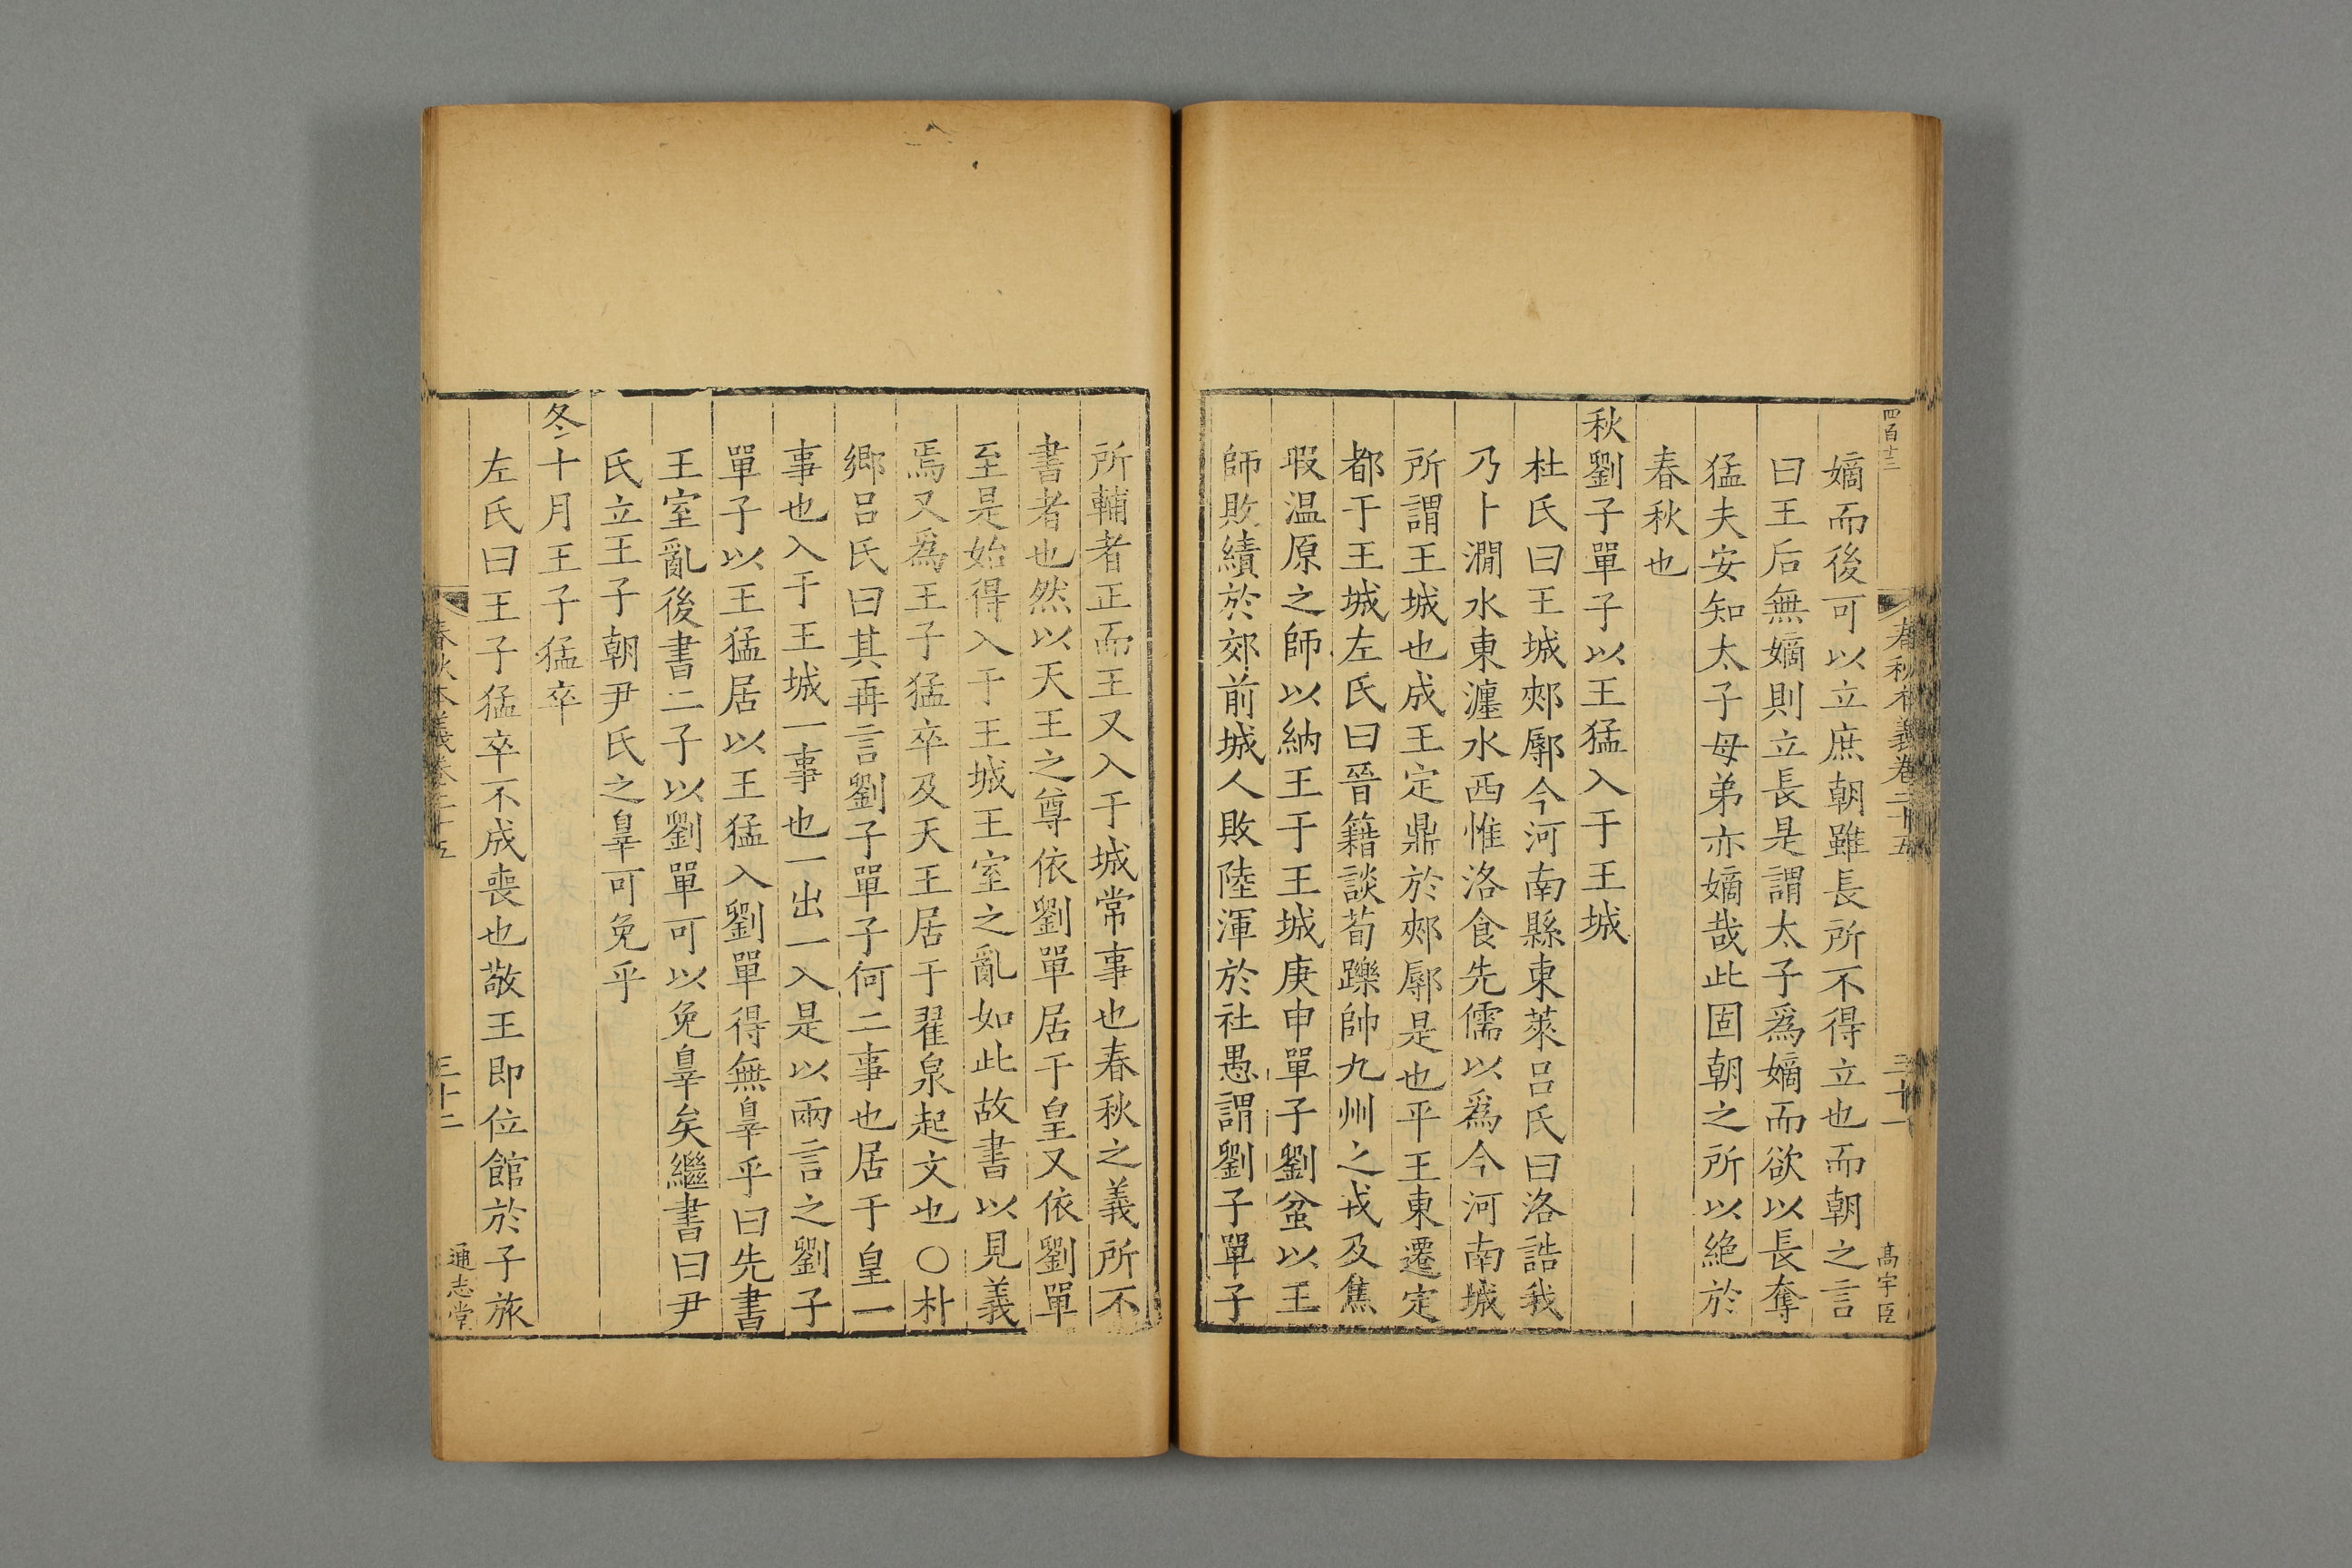 四百十三
春秋本義卷二十五
三十一
高宇臣
嫡而後可以立庶朝雖長所不得立也而朝之言
曰王后無嫡則立長是謂太子爲嫡而欲以長奪
猛夫安知太子母弟亦嫡哉此固朝之所以絶於
春秋也
秋劉子單子以王猛入于王城
杜氏曰王城郟鄏今河南縣東萊呂氏曰洛誥我
乃卜澗水東瀍水西惟洛食先儒以爲今河南城
所謂王城也成王定鼎於郟鄏是也平王東遷定
都于王城左氏曰晉籍談荀躒帥九州之戎及焦
瑕温原之師以納王于王城庚申單子劉蚠以王
師敗績於郊前城人敗陸渾於社愚謂劉子單子
所輔者正而王又入于城常事也春秋之義所不
書者也然以天王之尊依劉單居于皇又依劉單
至是始得入于王城王室之亂如此故書以見義
焉又爲王子猛卒及天王居于翟泉起文也○朴
鄉呂氏曰其再言劉子單子何二事也居于皇一
事也入于王城一事也一出一入是以兩言之劉子
單子以王猛居以王猛入劉單得無辠乎曰先書
王室亂後書二子以劉單可以免辠矣繼書曰尹
氏立王子朝尹氏之辠可免乎
冬十月王子猛卒
左氏曰王子猛卒不成喪也敬王即位館於子旅
春秋本義卷二十五
三十二
通志堂